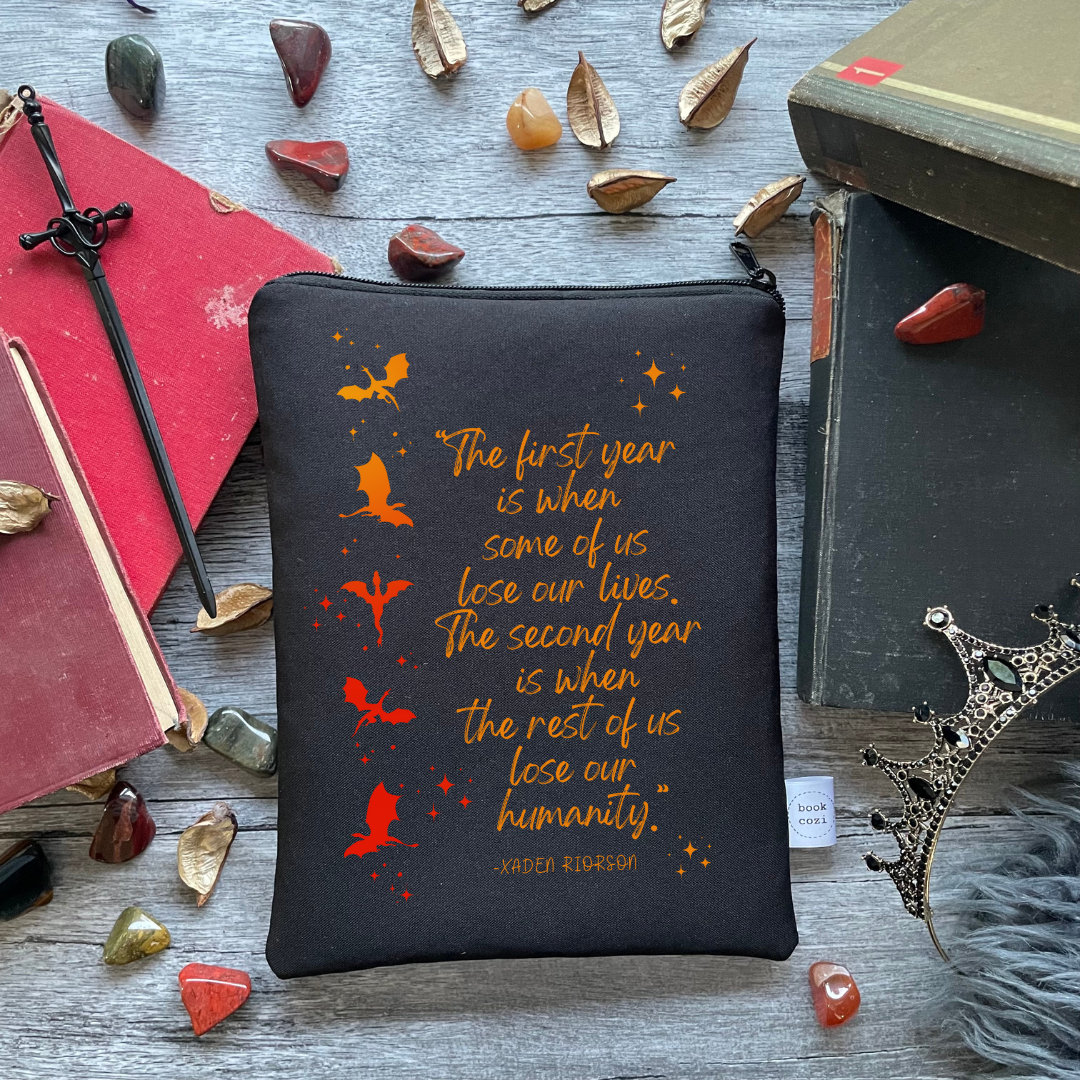 1
"The first year
is when
some of us
lose our lives.
The second year
is when
the rest of us
lose our
humanity."
-XADEN RIORSON
book
cozi